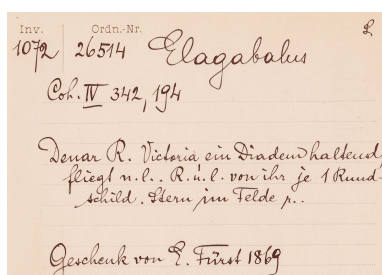 Inv. Ordn.-Nr.
1072 26514 Elagabalus
Coh. IV 342, 194
Denar R. Victoria ein Diadem haltend,
fliegt n. l.. R. u. l. von ihr je 1 Rund-
schild. Stern im Felde r..
Geschenk von E. Fürst 1869